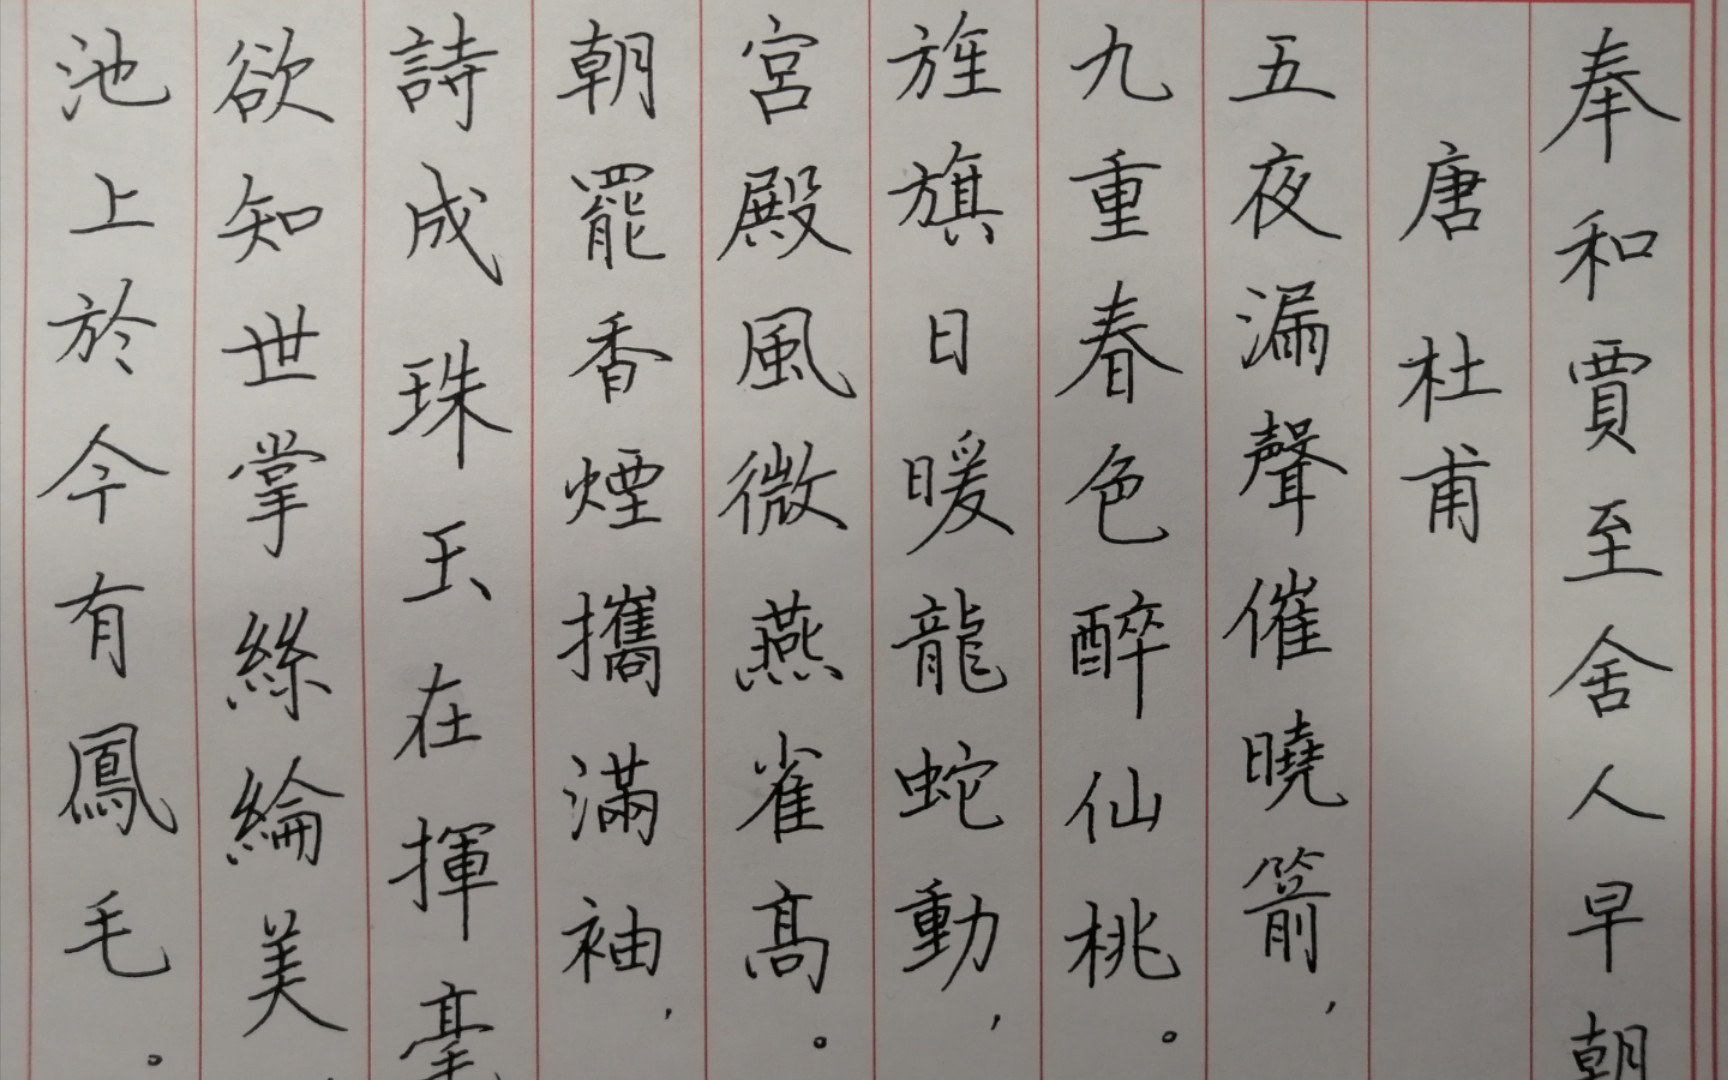 奉和賈至舍人早朝
唐 杜甫
五夜漏聲催曉箭，
九重春色醉仙桃。
旌旗日暖龍蛇動，
宮殿風微燕雀高。
朝罷香煙攜滿袖，
詩成珠玉在揮毫
欲知世掌絲綸美，
池上於今有鳳毛。